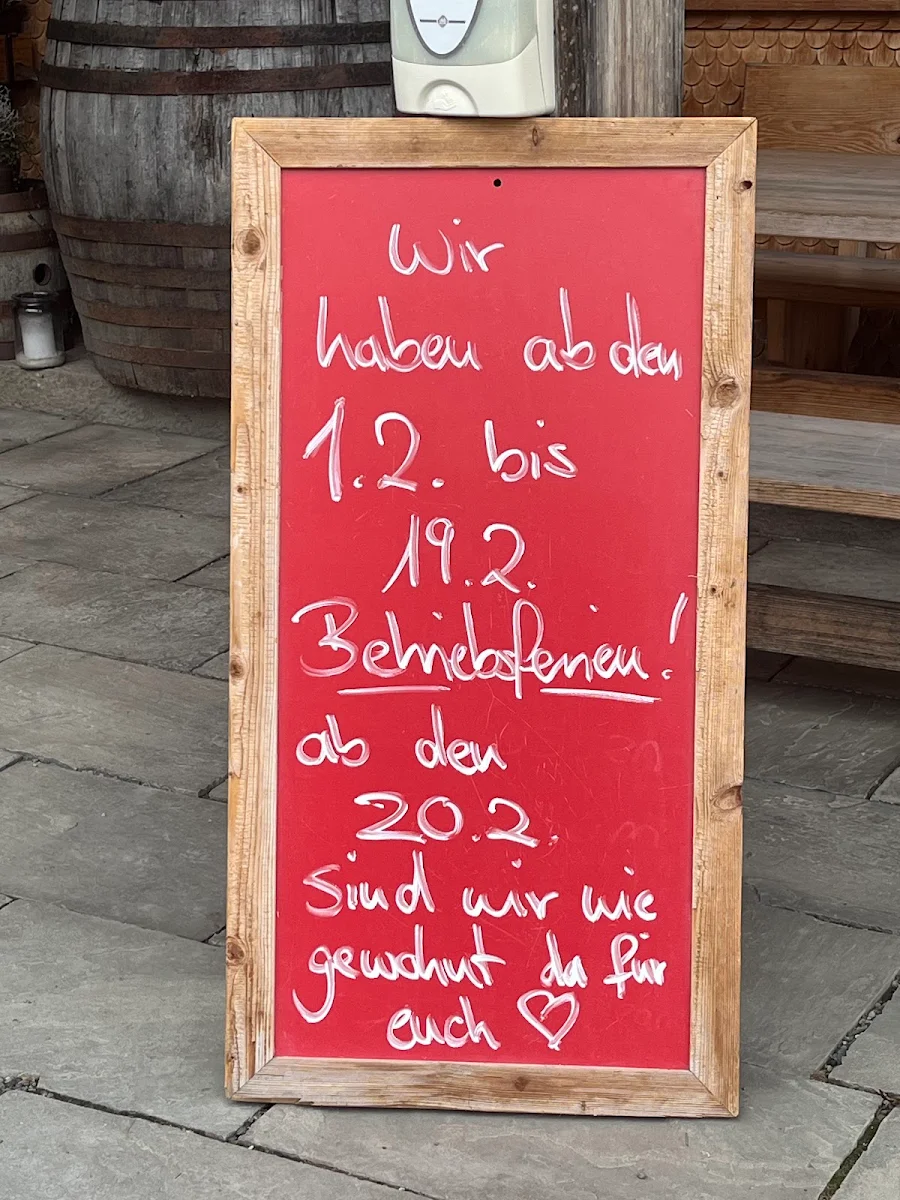 Wir
haben ab den
1.2. bis
19.2.
Betriebsferien!
ab den
20.2.
sind wir wie
gewohnt da für
euch ♡